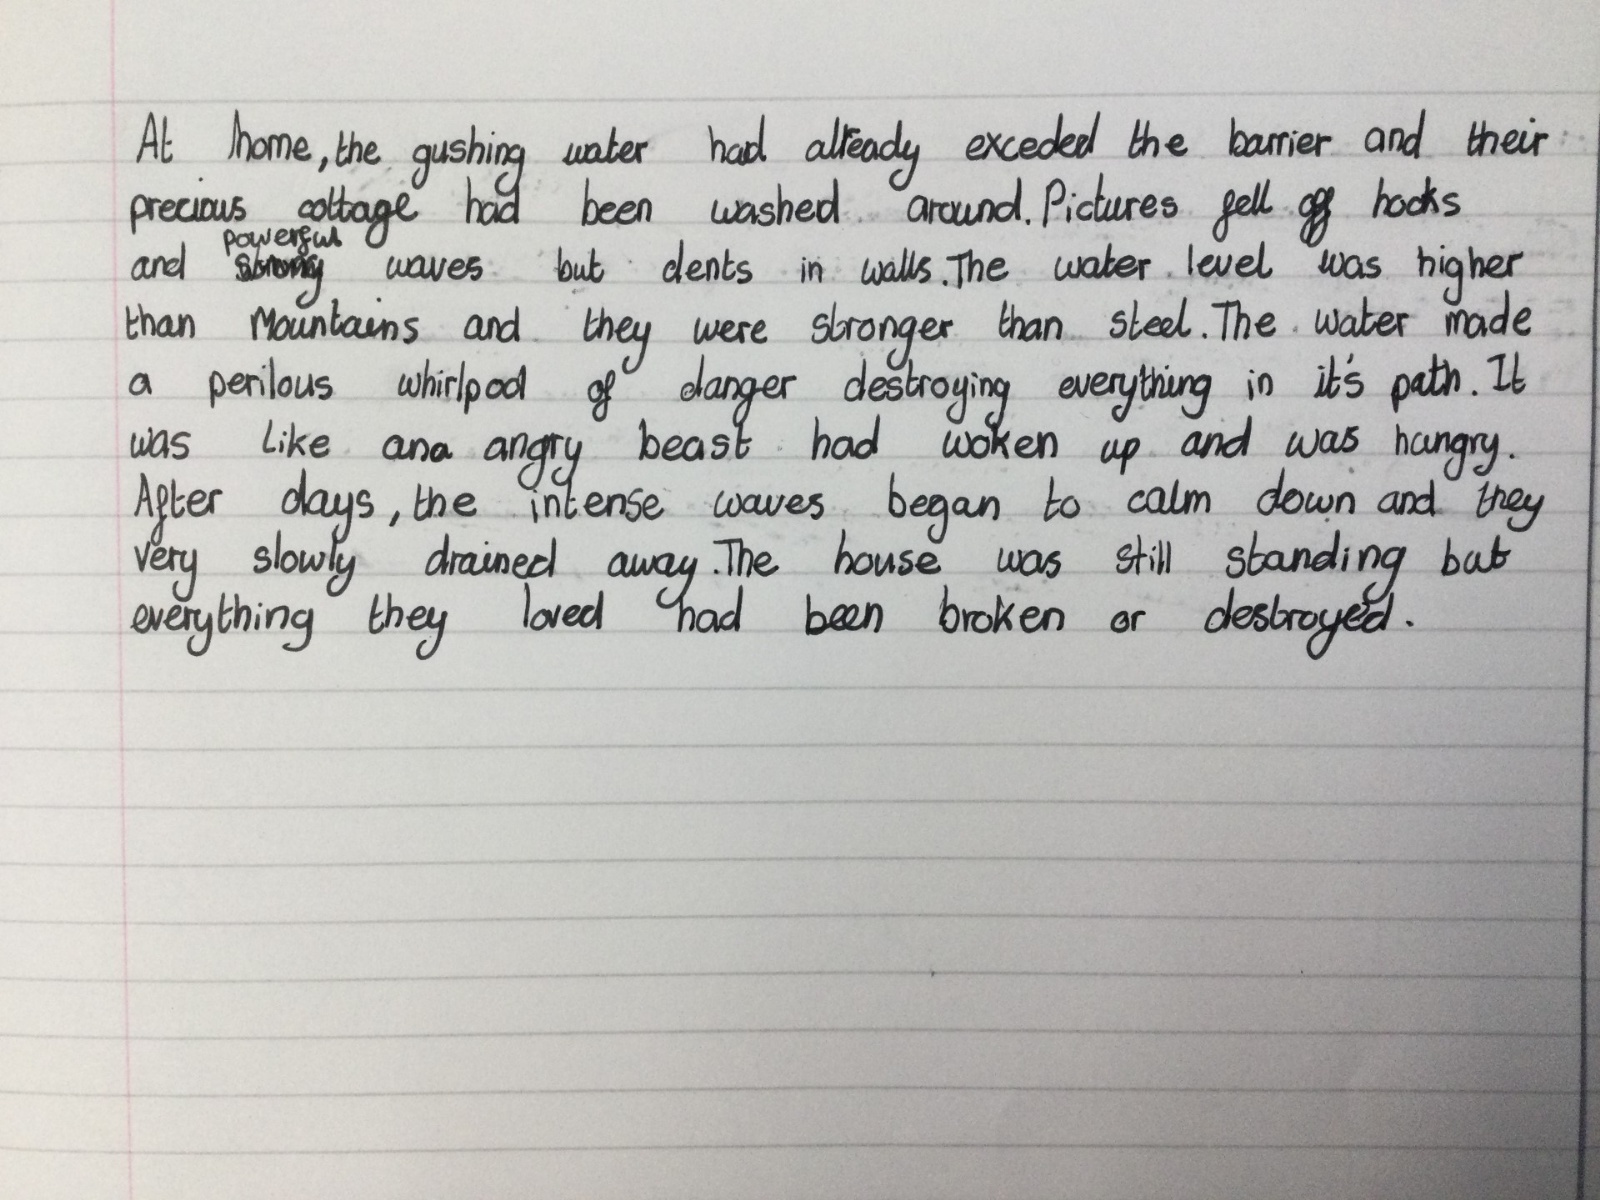 At home, the gushing water had already exceded the barrier and their
precious cottage had been washed around. Pictures fell off hooks
and powerful waves but dents in walls. The water level was higher
than Mountains and they were stronger than steel. The water made
a perilous whirlpool of danger destroying everything in it's path. It
was like ana angry beast had woken up and was hungry.
After days, the intense waves began to calm down and they
very slowly drained away. The house was still standing but
everything they loved had been broken or destroyed.